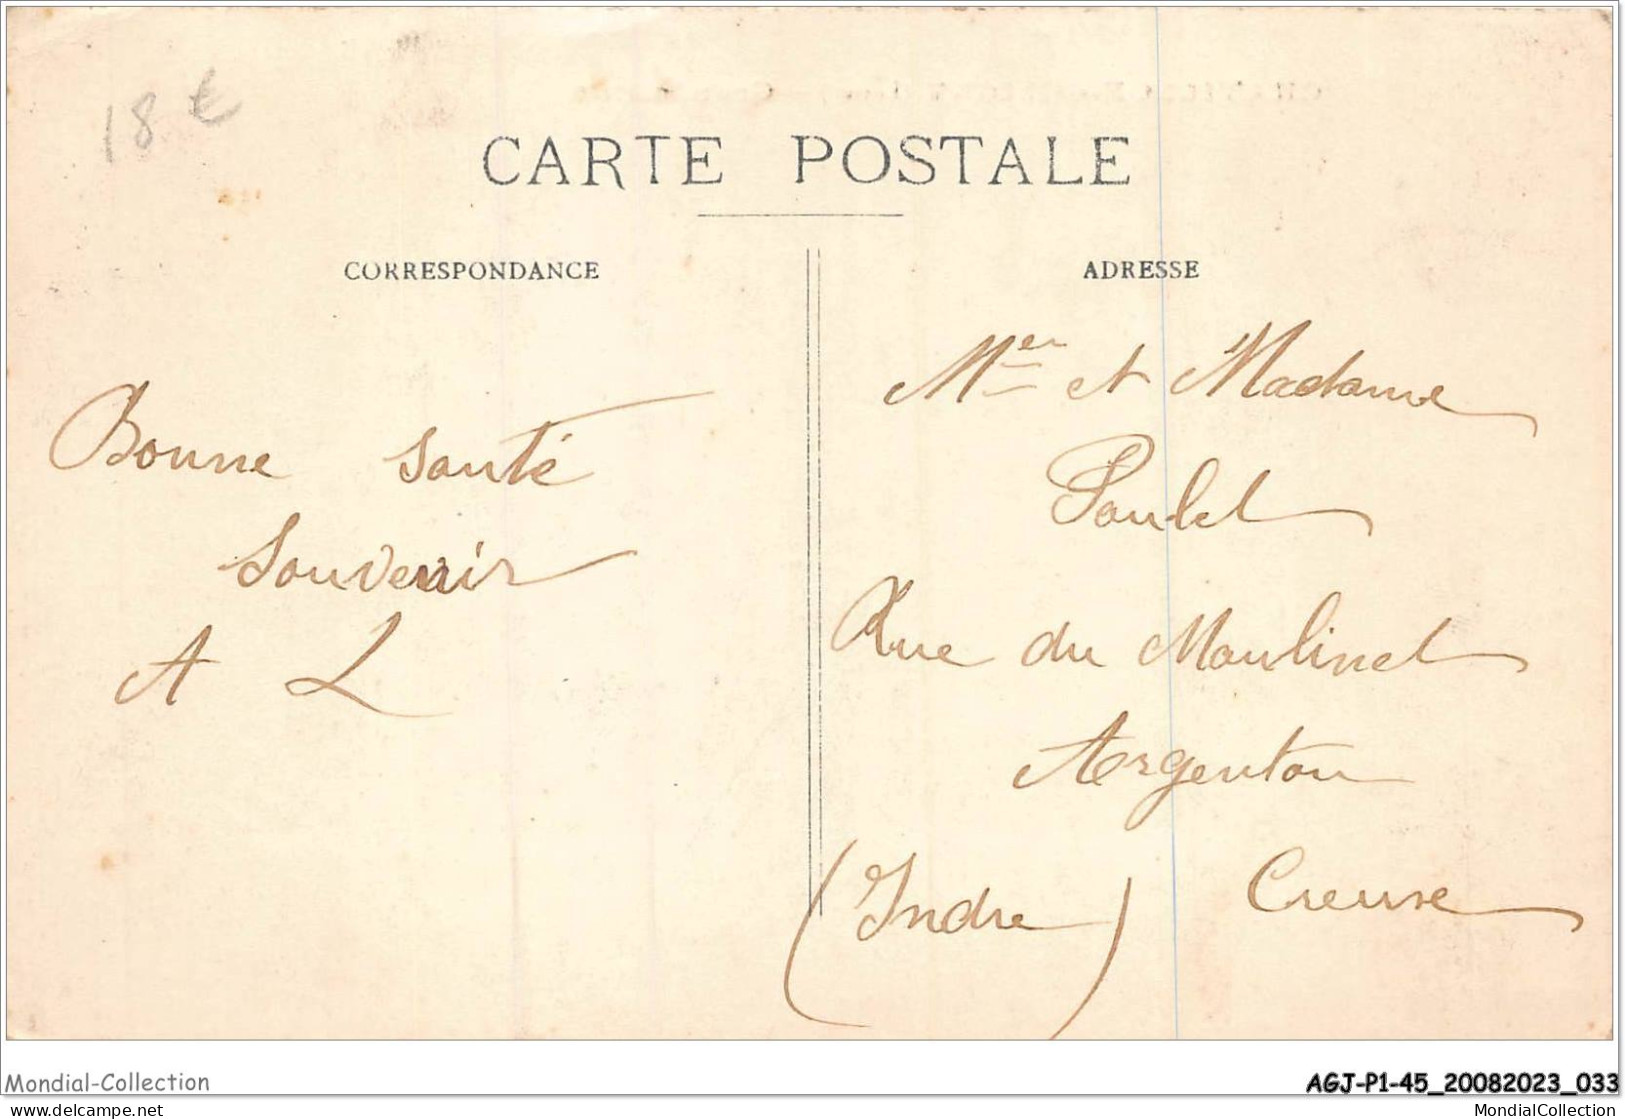 18 €
CARTE POSTALE
CORRESPONDANCE
ADRESSE
Bonne santé
Souvenir
A L
Mer et Madame
Poulet
Rue du Moulinet
Argenton
Creuse
(Indre)
Mondial-Collection
AGJ-P1-45_20082023_033
www.delcampe.net
MondialCollection